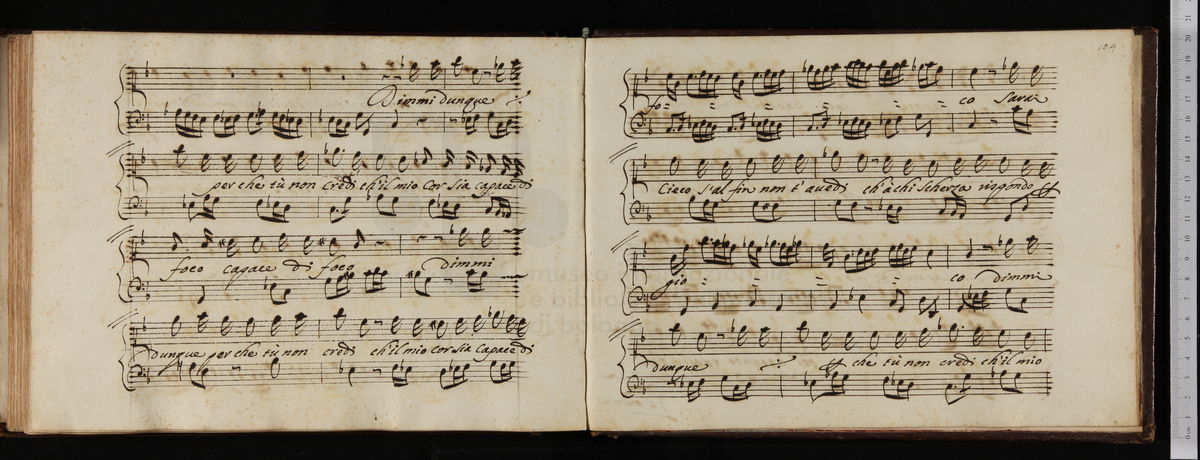 Dimmi dunque
perche tù non credi ch'il mio cor sia capace di
foco capace di foco dimmi
dunque perche tù non credi ch'il mio cor sia capace di
104
fo= = = = = = = co sarai
Cieco s'al fin non t'avedi ch'à chi scherza
gio = = = = co dimmi
dunque che tù non credi ch'il mio
museo internazionale
e biblio
di bolo